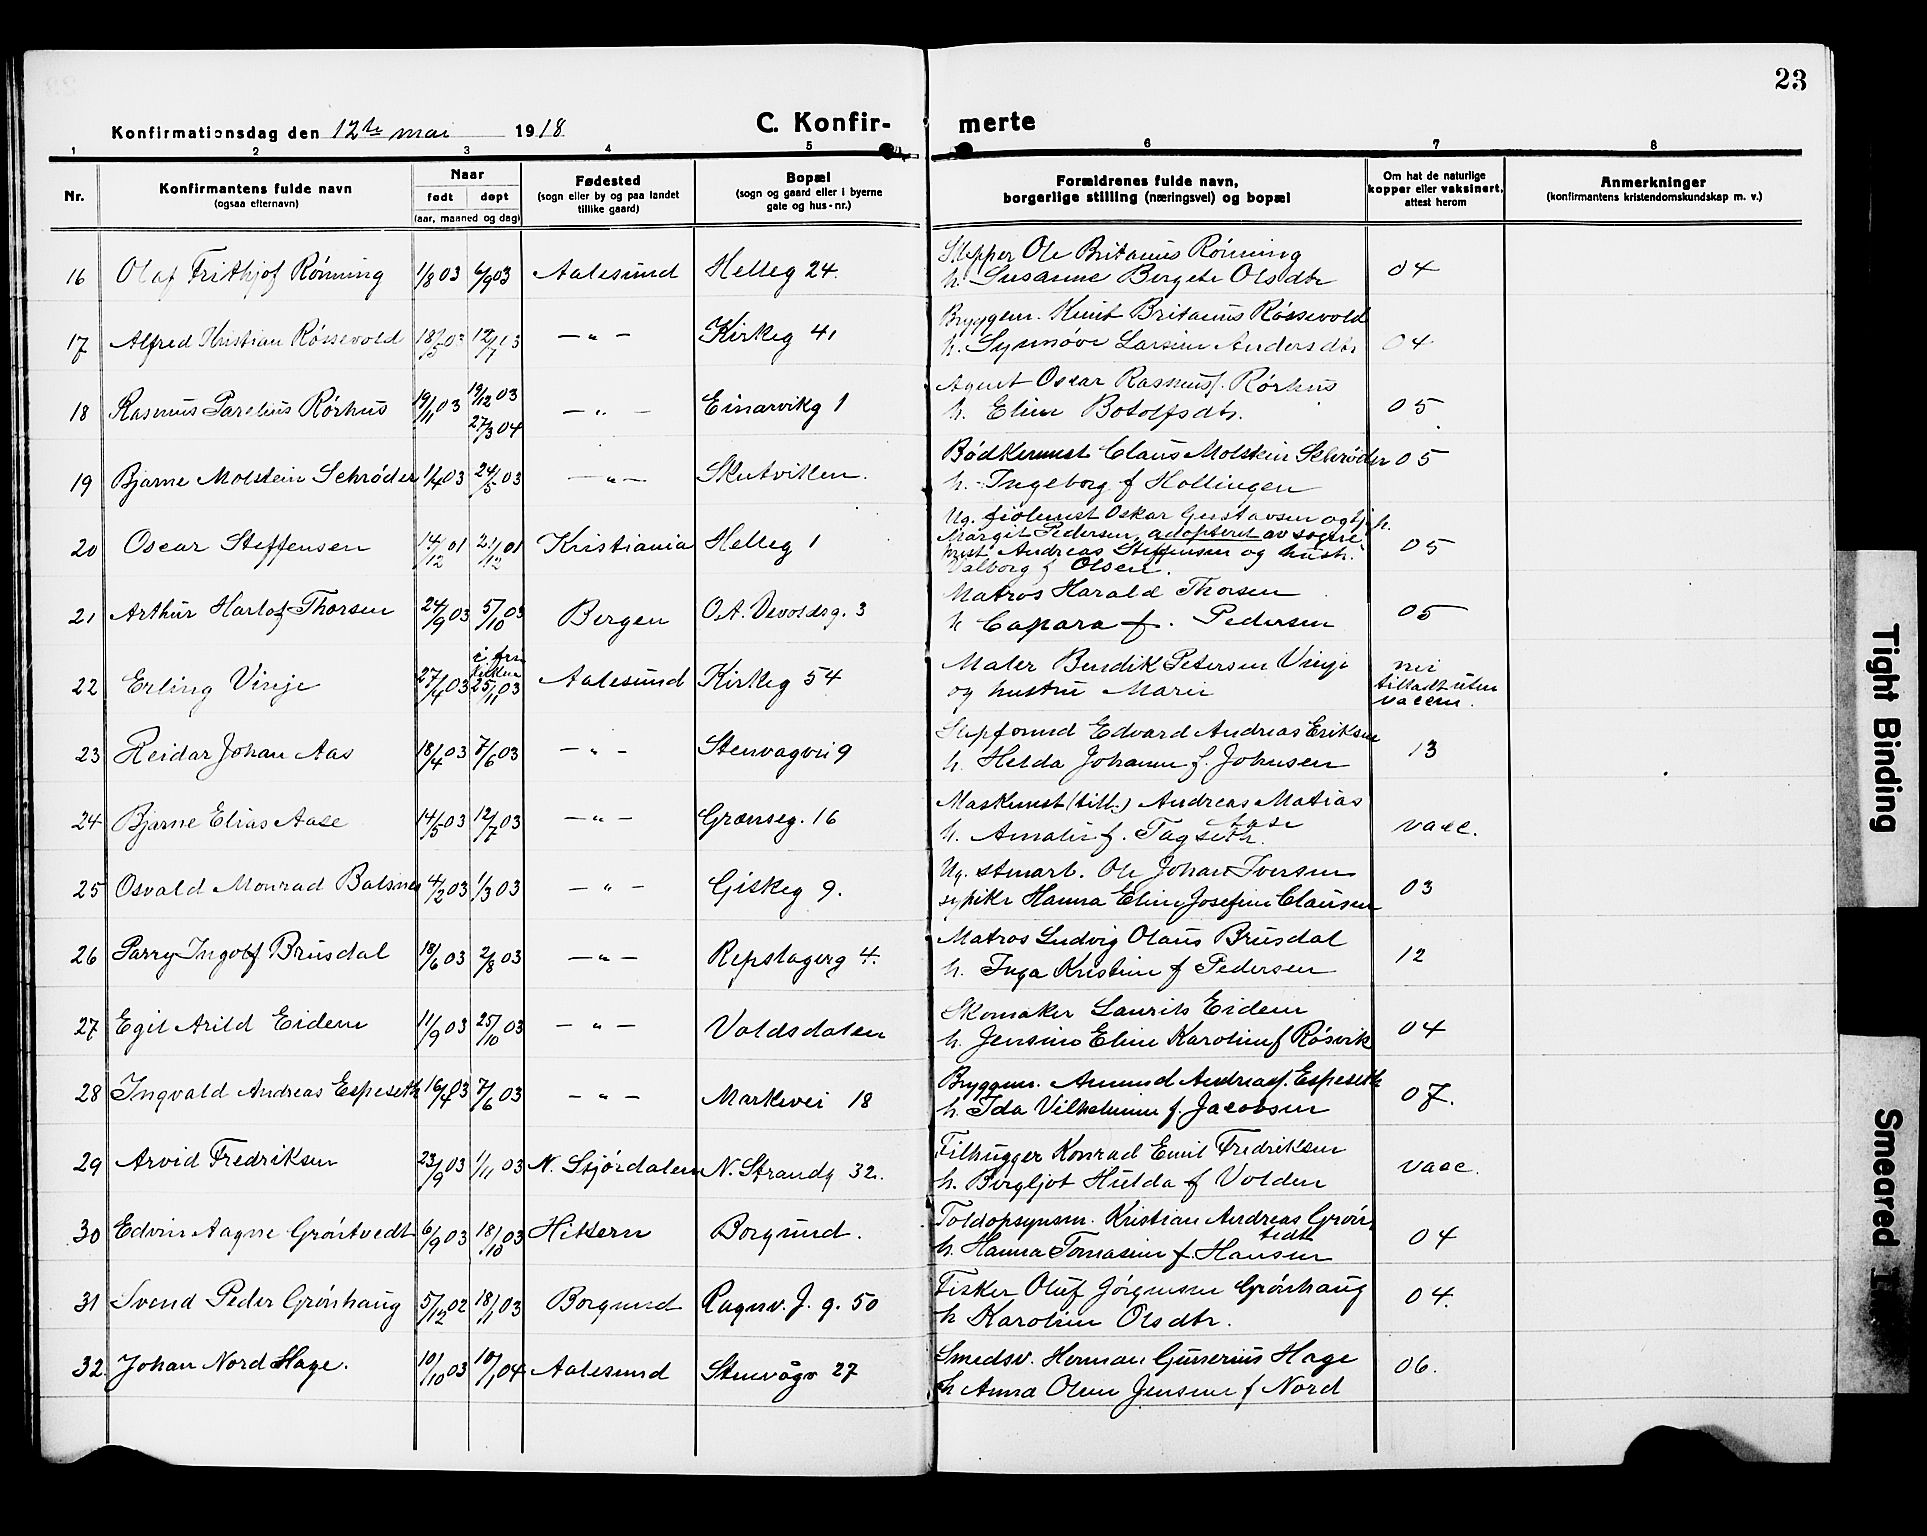 23
Konfirmationsdag den 12te mai 1918
C. Konfir- merte
1 2 3 4 5 6 7 8
Nr.
Konfirmantens fulde navn
(ogsaa efternavn)
Naar
født døpt
(aar, maaned og dag)
Fødested
(sogn eller by og paa landet
tillike gaard)
Bopæl
(sogn og gaard eller i byerne
gate og hus-nr.)
Forældrenes fulde navn,
borgerlige stilling (næringsvei) og bopæl
Om hat de naturlige
kopper eller vaksinert,
attest herom
Anmerkninger
(konfirmantens kristendomskundskap m. v.)
16 Olaf Frithjof Rønning 1/8 03 6/9 03 Aalesund Helleg 24.
Skipper Ole Britanus Rønning
h. Susanne Bergete Olsdtr 04
17 Alfred Kristian Røssevold 18/5 03 12/7 03 — " — Kirkeg 41
Bryggem. Knut Britanus Røssevold
h. Synnøve Larsine Andersdtr 04
18 Rasmus Parelius Rørhus 19/11 03 19/12 03
27/3 04 — " — Einarvikg 1
Agent Oscar Rasmusf. Rørhus
h. Eline Botolfsdtr. 05
19 Bjarne Molstein Schrøder 1/4 03 24/5 03 — " — Skutviken.
Bødkermest Claus Molstein Schrøder 05
h. Ingeborg f Hollingen
20 Oscar Steffensen 14/12 01 21/12 01 Kristiania Helleg 1
Ug. Oskar Gustavsen og tj.p.
Margit Pedersen, adopteret av
Andreas Steffensen og hustr. 05
Valborg f Olsen.
21 Arthur Harlof Thorsen 24/9 03 5/10 03 Bergen O.A. Devoldsg. 3
Matros Harald Thorsen
h Capara f. Pedersen 05
22 Erling Vinje 27/4 03 i fri
kirken
25/11 03 Aalesund Kirkeg 54
Maler Bendik Petersen Vinje
og hustru Marie
nei
tilladt uten
vaccin.
23 Reidar Johan Aas 18/4 03 7/6 03 — " — Stenvagvei 9
Skipformd Edvard Andreas Eriksen
h. Helda Johanne f. Johnsen 13
24 Bjarne Elias Aase 14/5 03 12/7 03 — " — Grænseg. 16
Maskinist (till.) Andreas Matias
Aase
h. Amalie f. Tagseth. vacc.
25 Osvald Monrad Balsnes 4/2 03 1/3 03 — " — Giskeg 9.
Ug. stuarb. Ole Johan Iversen
sypike Hanna Eline Josefine Clausen 03
26 Parry Ingolf Brusdal 18/6 03 2/8 03 — " — Repslagerg 4.
Matros Ludvig Olaus Brusdal
h. Inga Kristine f Pedersen 12
27 Egil Arild Eidem 11/9 03 25/10 03 — " — Voldsdalen
Skomaker Laurits Eidem
h. Jensine Eline Karoline f Røsvik 04
28 Ingvald Andreas Espeseth 16/4 03 7/6 03 — " — Markevei 18
Bryggem. Amund Andreasf. Espeseth
h. Ida Vilhelmine f. Jacobsen 07.
29 Arvid Fredriksen 23/9 03 1/11 03 N. Stjørdalen N. Strandg 32.
Filhugger Konrad Emil Fredriksen
h. Bergljot Hulda f Volden vacc.
30 Edvin Aagne Grøntvedt 6/9 03 18/10 03 Hitteren Borgund.
Toldopsynsm. Kristian Andreas Grøn-
tvedt
h. Hanna Tomasine f. Hansen 04
31 Svend Peder Grønhaug 5/12 02 18/1 03 Borgund Ragnv. J. g. 50
Fisker Oluf Jørgensen Grønhaug
h Karoline Olsdtr. 04.
32. Johan Nord Hage. 10/10 03 10/1 04 Aalesund Stenvågv 27
Smedsv. Herman Gunerius Hage
h Anna Oline Jensine f Nord 06.
Tight Binding
Smeared